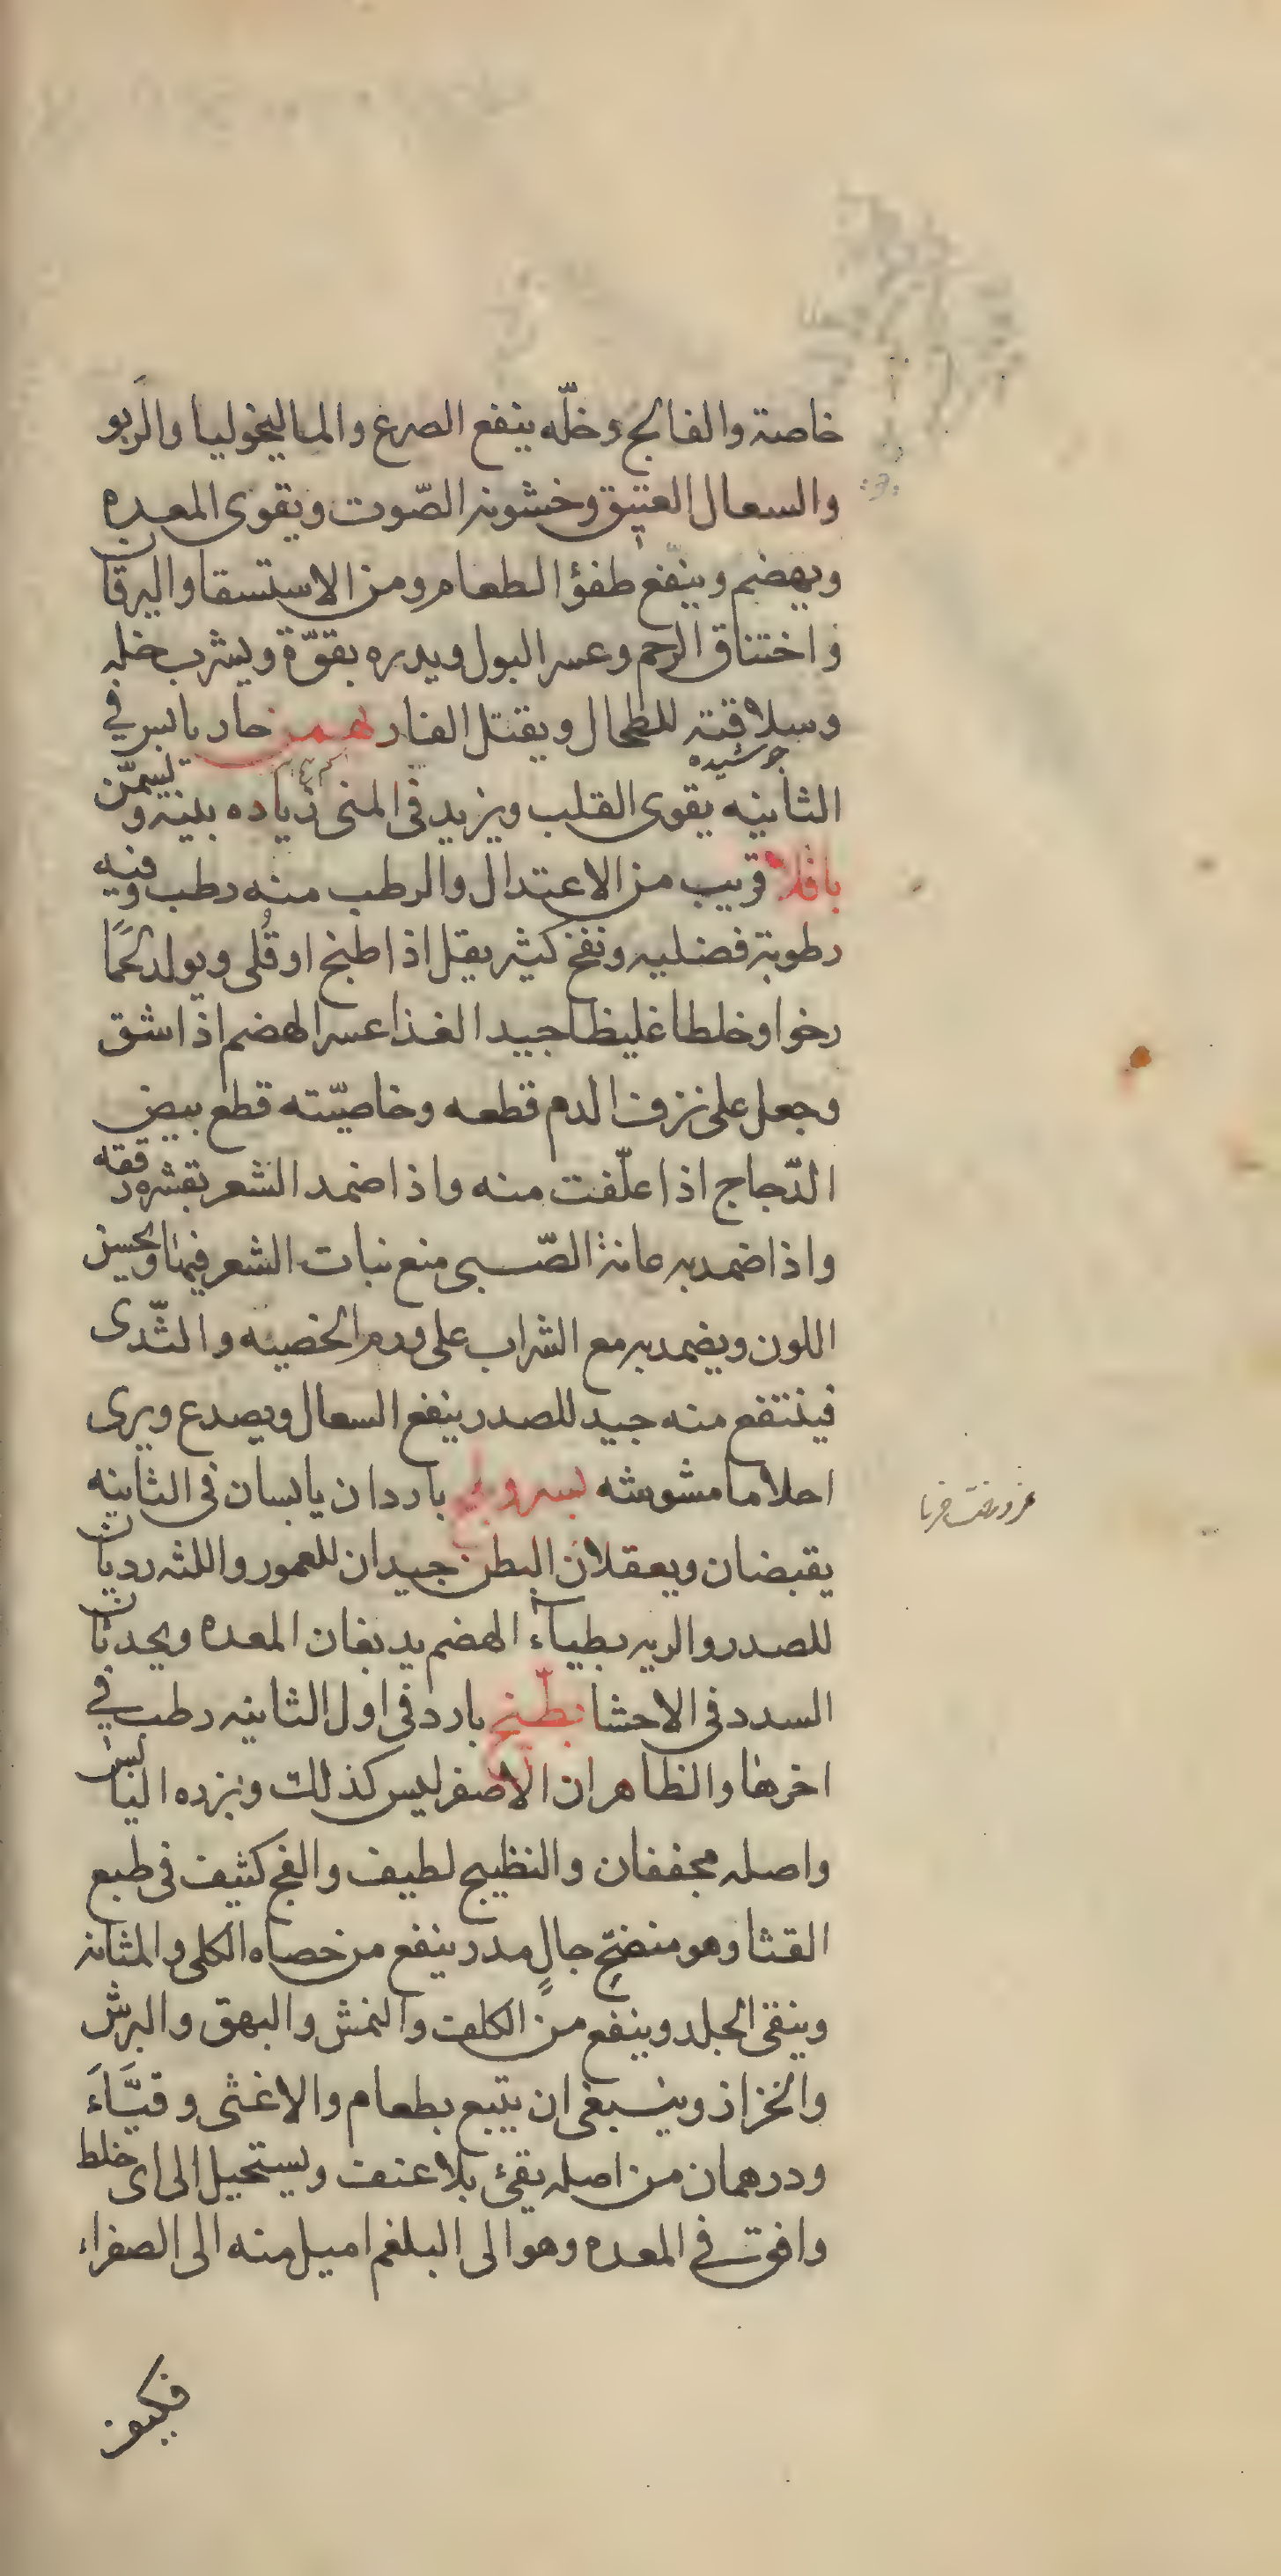 خاصة والفالج وخلّه ينفع الصرع والماليخوليا والربو
والسعال العتيق وخشونة الصّوت ويقوى المعده
ويهضم وينفع طفؤ الطعام ومن الاستسقا واليرقان
واختناق الرحم وعسر البول ويدره بقوّة ويشرب خله
وسلاقته للطحال ويقتل الفار بهمن حار يابس في
جوشیده
الثانيه يقوى القلب ويزيد فى المنى زياده بينه ويسمّن
باقلا قريب من الاعتدال والرطب منه رطب وفيه
رطوبة فضليه ونفخ كثير يقل اذا طبخ او قُلى ويولد لحمًا
رخوا وخلطا غليظا جيد الغذا عسر الهضم اذا شق
وجعل على نزف الدم قطعه وخاصيّته قطع بيض
الدّجاج اذا علّفت منه واذا ضمد الشعر بقشره رققه
واذا ضمد به عانة الصّبى منع نبات الشعر فيها ويحسن
اللون ويضمد به مع الشراب على ورم الخصيه والثّدى
فينتفع منه جيد للصدر ينفع السعال ويصدع ويرى
احلاما مشوشه بسر وبلح باردان يابسان فى الثانيه
يقبضان ويعقلان البطن جيدان للعمور واللثه رديان
للصدر والريه بطياء الهضم يدبغان المعده ويحدثان
السدد فى الاحشا بطّيخ بارد فى اول الثانيه رطب في
اخرها والظاهر ان الاصفر ليس كذلك وبزره اليابس
واصله مجففان والنظيج لطيف والفج كثيف فى طبع
القثا وهو منضج جالٍ مدر ينفع من حصاه الكلى والمثانه
وينقى الجلد وينفع من الكلف والنمش والبهق والبرش
والخزاز وينبغى ان يتبع بطعام والا غثى وقيَّأَ
ودرهمان من اصله يقئ بلا عنف ويستحيل الى اى خلط
وافق في المعده وهو الى البلغم اميل منه الى الصفراء
فكيف